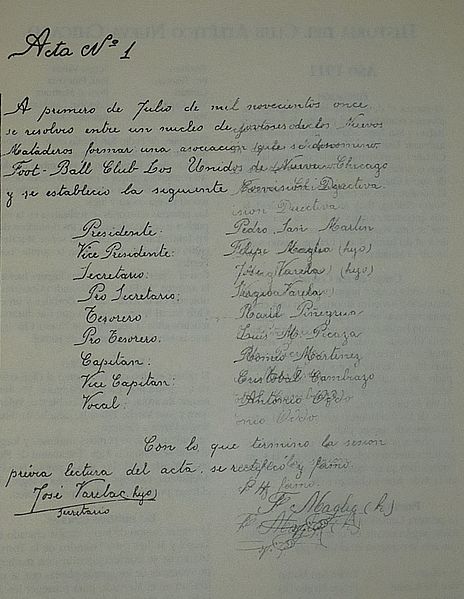 Acta Nº 1
A primero de Julio de mil novecientos once,
se resolvio entre un nucleo de jovenes de los Nuevos
Mataderos formar una asociación que se denomino
Foot-Ball Club Los Unidos de Nueva Chicago
y se establecio la siguiente Comisión Directiva
isión Directiva.
Presidente: Pedro San Martin
Vice Presidente: Felipe Maglia (hijo)
Secretario: José Varela (hijo)
Pro Secretario: Varela
Tesorero Raúl Piñeyrua
Pro Tesorero: Luis M. Picaza
Capitán: Romeo Martinez
Vice Capitan: Cristobal Cambiazo
Vocal: Antonio Oddo
onio Oddo
Con lo que termino la sesión
prévia lectura del acta, se rectificó y firmo.
José Varela (hijo) F. Maglia (h)
Secritario